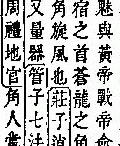 魅與黃帝戰帝命
宿之首蒼龍之角
角旋風也莊子消
又量器管子七法
周禮地官角人掌